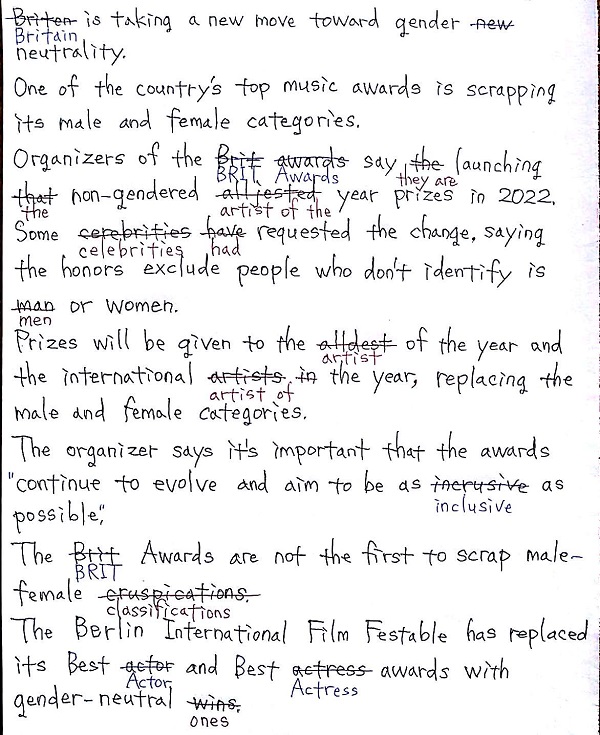 Briten is taking a new move toward gender new
Britain
neutrality.
One of the country's top music awards is scrapping
its male and female categories.
Organizers of the Brit awards say the launching
BRIT Awards they are
that non-gendered all jested year prizes in 2022.
the artist of the
Some cerebrities have requested the change, saying
celebrities had
the honors exclude people who don't identify is
man or women.
men
Prizes will be given to the alldest of the year and
artist
the international artists in the year, replacing the
artist of
male and female categories.
The organizer says it's important that the awards
"continue to evolve and aim to be as incrusive as
inclusive
possible",
The Brit Awards are not the first to scrap male-
BRIT
female cruspications.
classifications
The Berlin International Film Festable has replaced
its Best actor and Best actress awards with
Actor Actress
gender-neutral wins.
ones